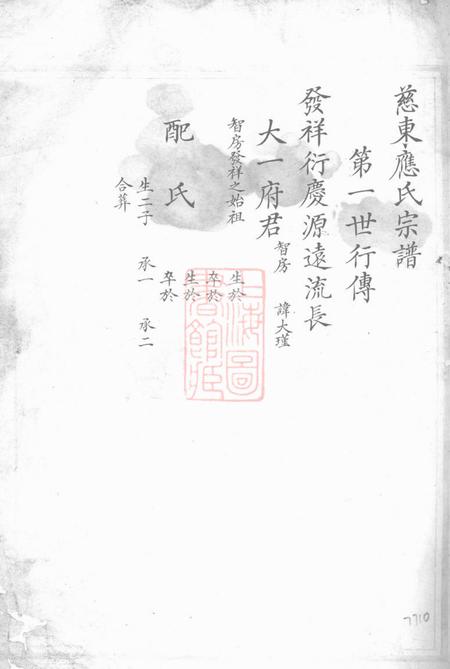 慈東應氏宗譜
第一世行傳
發祥衍慶源遠流長
大一府君
智房 諱大瑾
智房發祥之始祖
生於
卒於
配 氏
生於
卒於
生二子 承一 承二
合葬
上海圖書館藏
7710